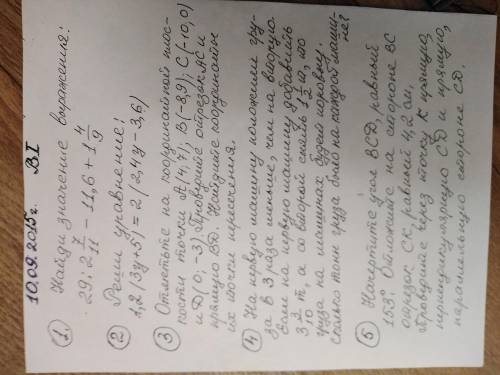 10.09.2015г. В.I
① Найди значение выражения:
29 : 2 7/11 - 11,6 + 1 4/9
② Реши уравнение:
1,2(3у+5) = 2(2,4у-3,6)
③ Отметьте на координатной плос-
кости точки А(4,7); В(-8,9); С(-10,0)
и D(0; -3). Проведите отрезок АС и
прямую BD. Найдите координаты
их точки пересечения.
④ На первую машину положили гру-
за в 3 раза меньше, чем на вторую.
Если на первую машину добавить
3 2/10 т, а со второй снять 1 1/2 т, то
груза на машинах будет поровну.
Сколько тонн груза было на каждой маши-
не?
⑤ Начертите угол BCD, равный
153°. Отложите на стороне ВС
отрезок СК, равный 4,2 см,
проведите через точку К прямую,
перпендикулярную CD и прямую,
параллельную стороне CD.